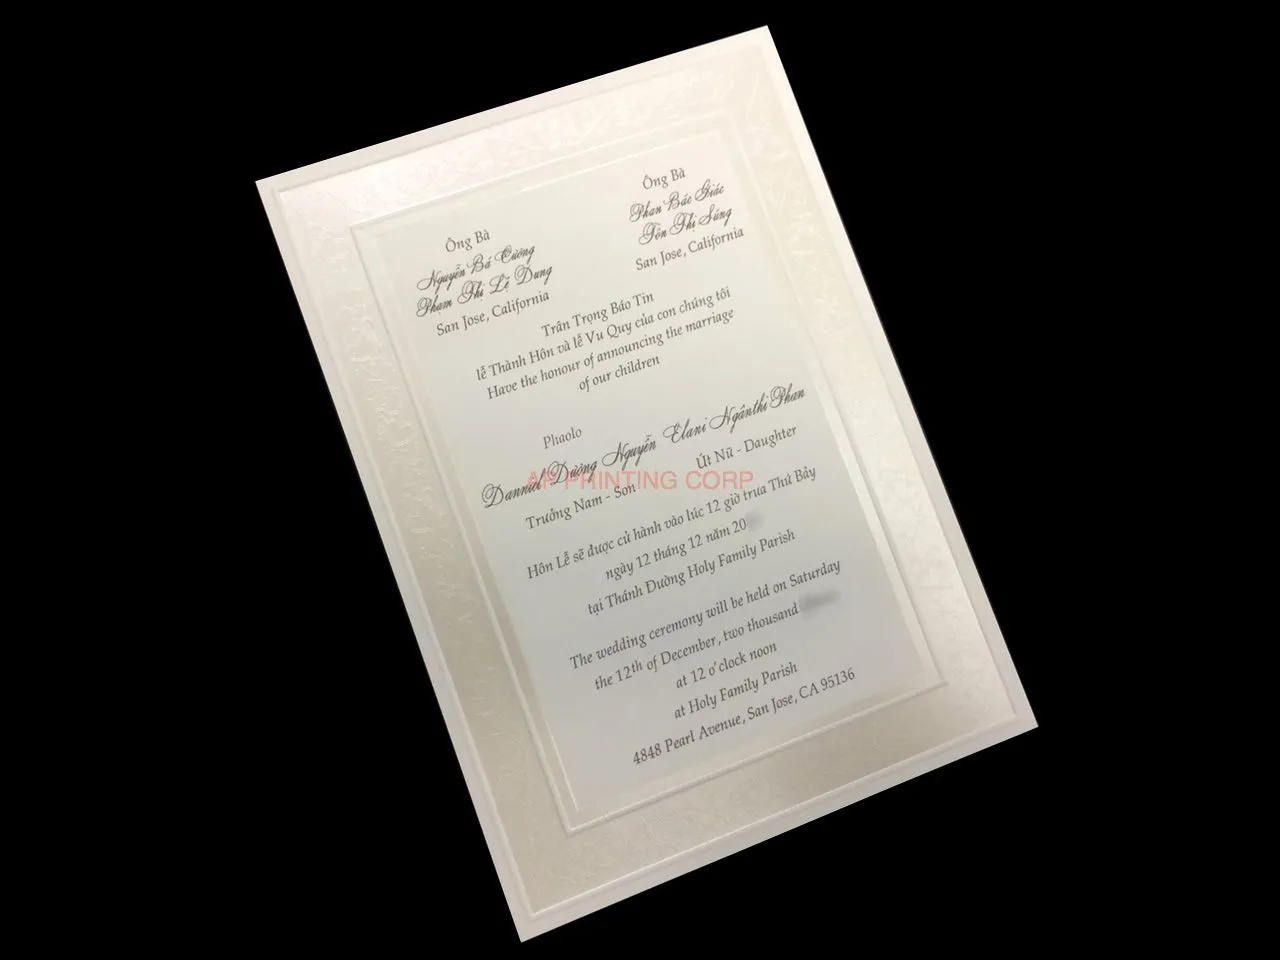 Ông Bà
Nguyễn Bá Cường
Phạm Thị Lệ Dung
San Jose, California
Ông Bà
Phan Bác Giác
Tôn Thị Súng
San Jose, California
Trân Trọng Báo Tin
lễ Thành Hôn và lễ Vu Quy của con chúng tôi
Have the honour of announcing the marriage
of our children
Phaolo
Danniel Dương Nguyễn Elani Ngânthi Phan
Trưởng Nam - Son Út Nữ - Daughter
AP PRINTING CORP
Hôn Lễ sẽ được cử hành vào lúc 12 giờ trưa Thứ Bảy
ngày 12 tháng 12 năm 20
tại Thánh Đường Holy Family Parish
The wedding ceremony will be held on Saturday
the 12th of December, two thousand
at 12 o'clock noon
at Holy Family Parish
4848 Pearl Avenue, San Jose, CA 95136